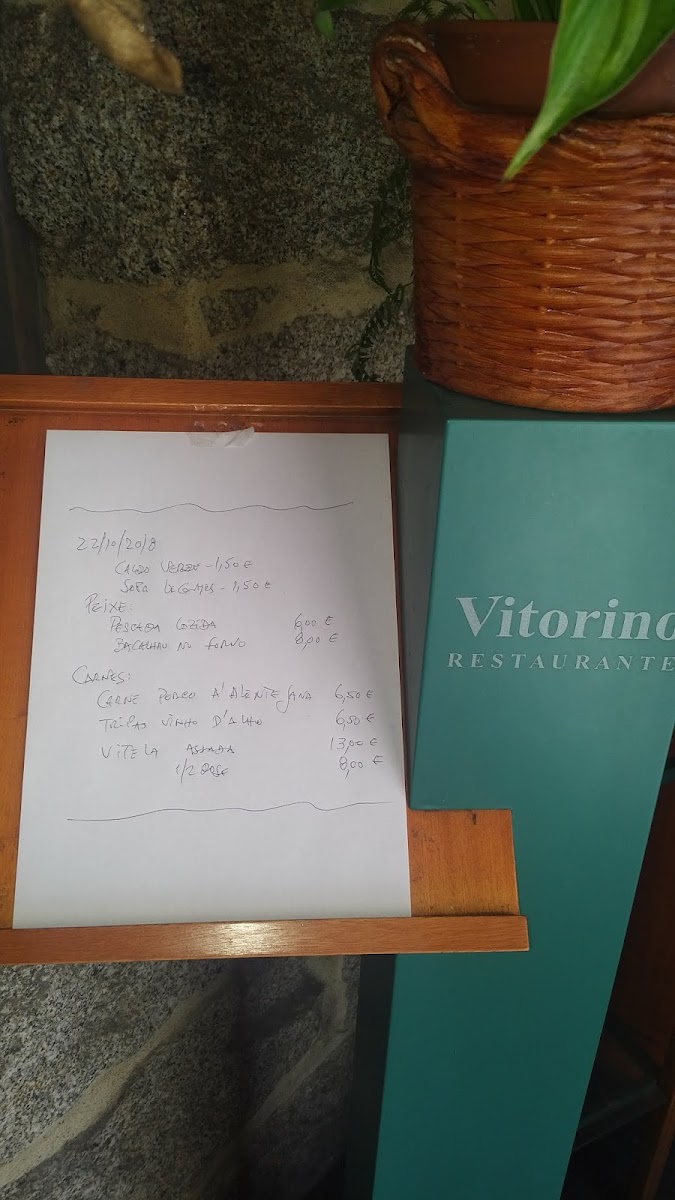 22/10/2018
CALDO VERDE - 1,50 €
SOPA LEGUMES - 1,50 €
PEIXE:
PESCADA COZIDA 6,00 €
BACALHAU NO FORNO 8,00 €
CARNES:
CARNE PORCO A' ALENTEJANA 6,50 €
TRIPAS VINHO D'ALHO 6,50 €
VITELA ASSADA 13,00 €
1/2 DOSE 8,00 €
Vitorino
RESTAURANTE